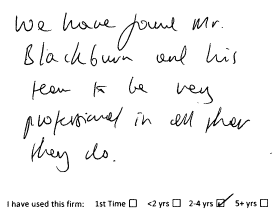 We have found Mr.
Blackburn and his
team to be very
professional in all that
they do.
I have used this firm: 1st Time ☐ <2 yrs ☐ 2-4 yrs ☑ 5+ yrs ☐